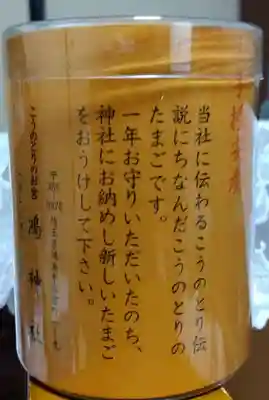 子授安産
当社に伝わるこうのとり伝
説にちなんだこうのとりの
たまごです。
一年お守りいただいたのち、
神社にお納めし新しいたまご
をおうけして下さい。
こうのとりのお宮
鴻神社